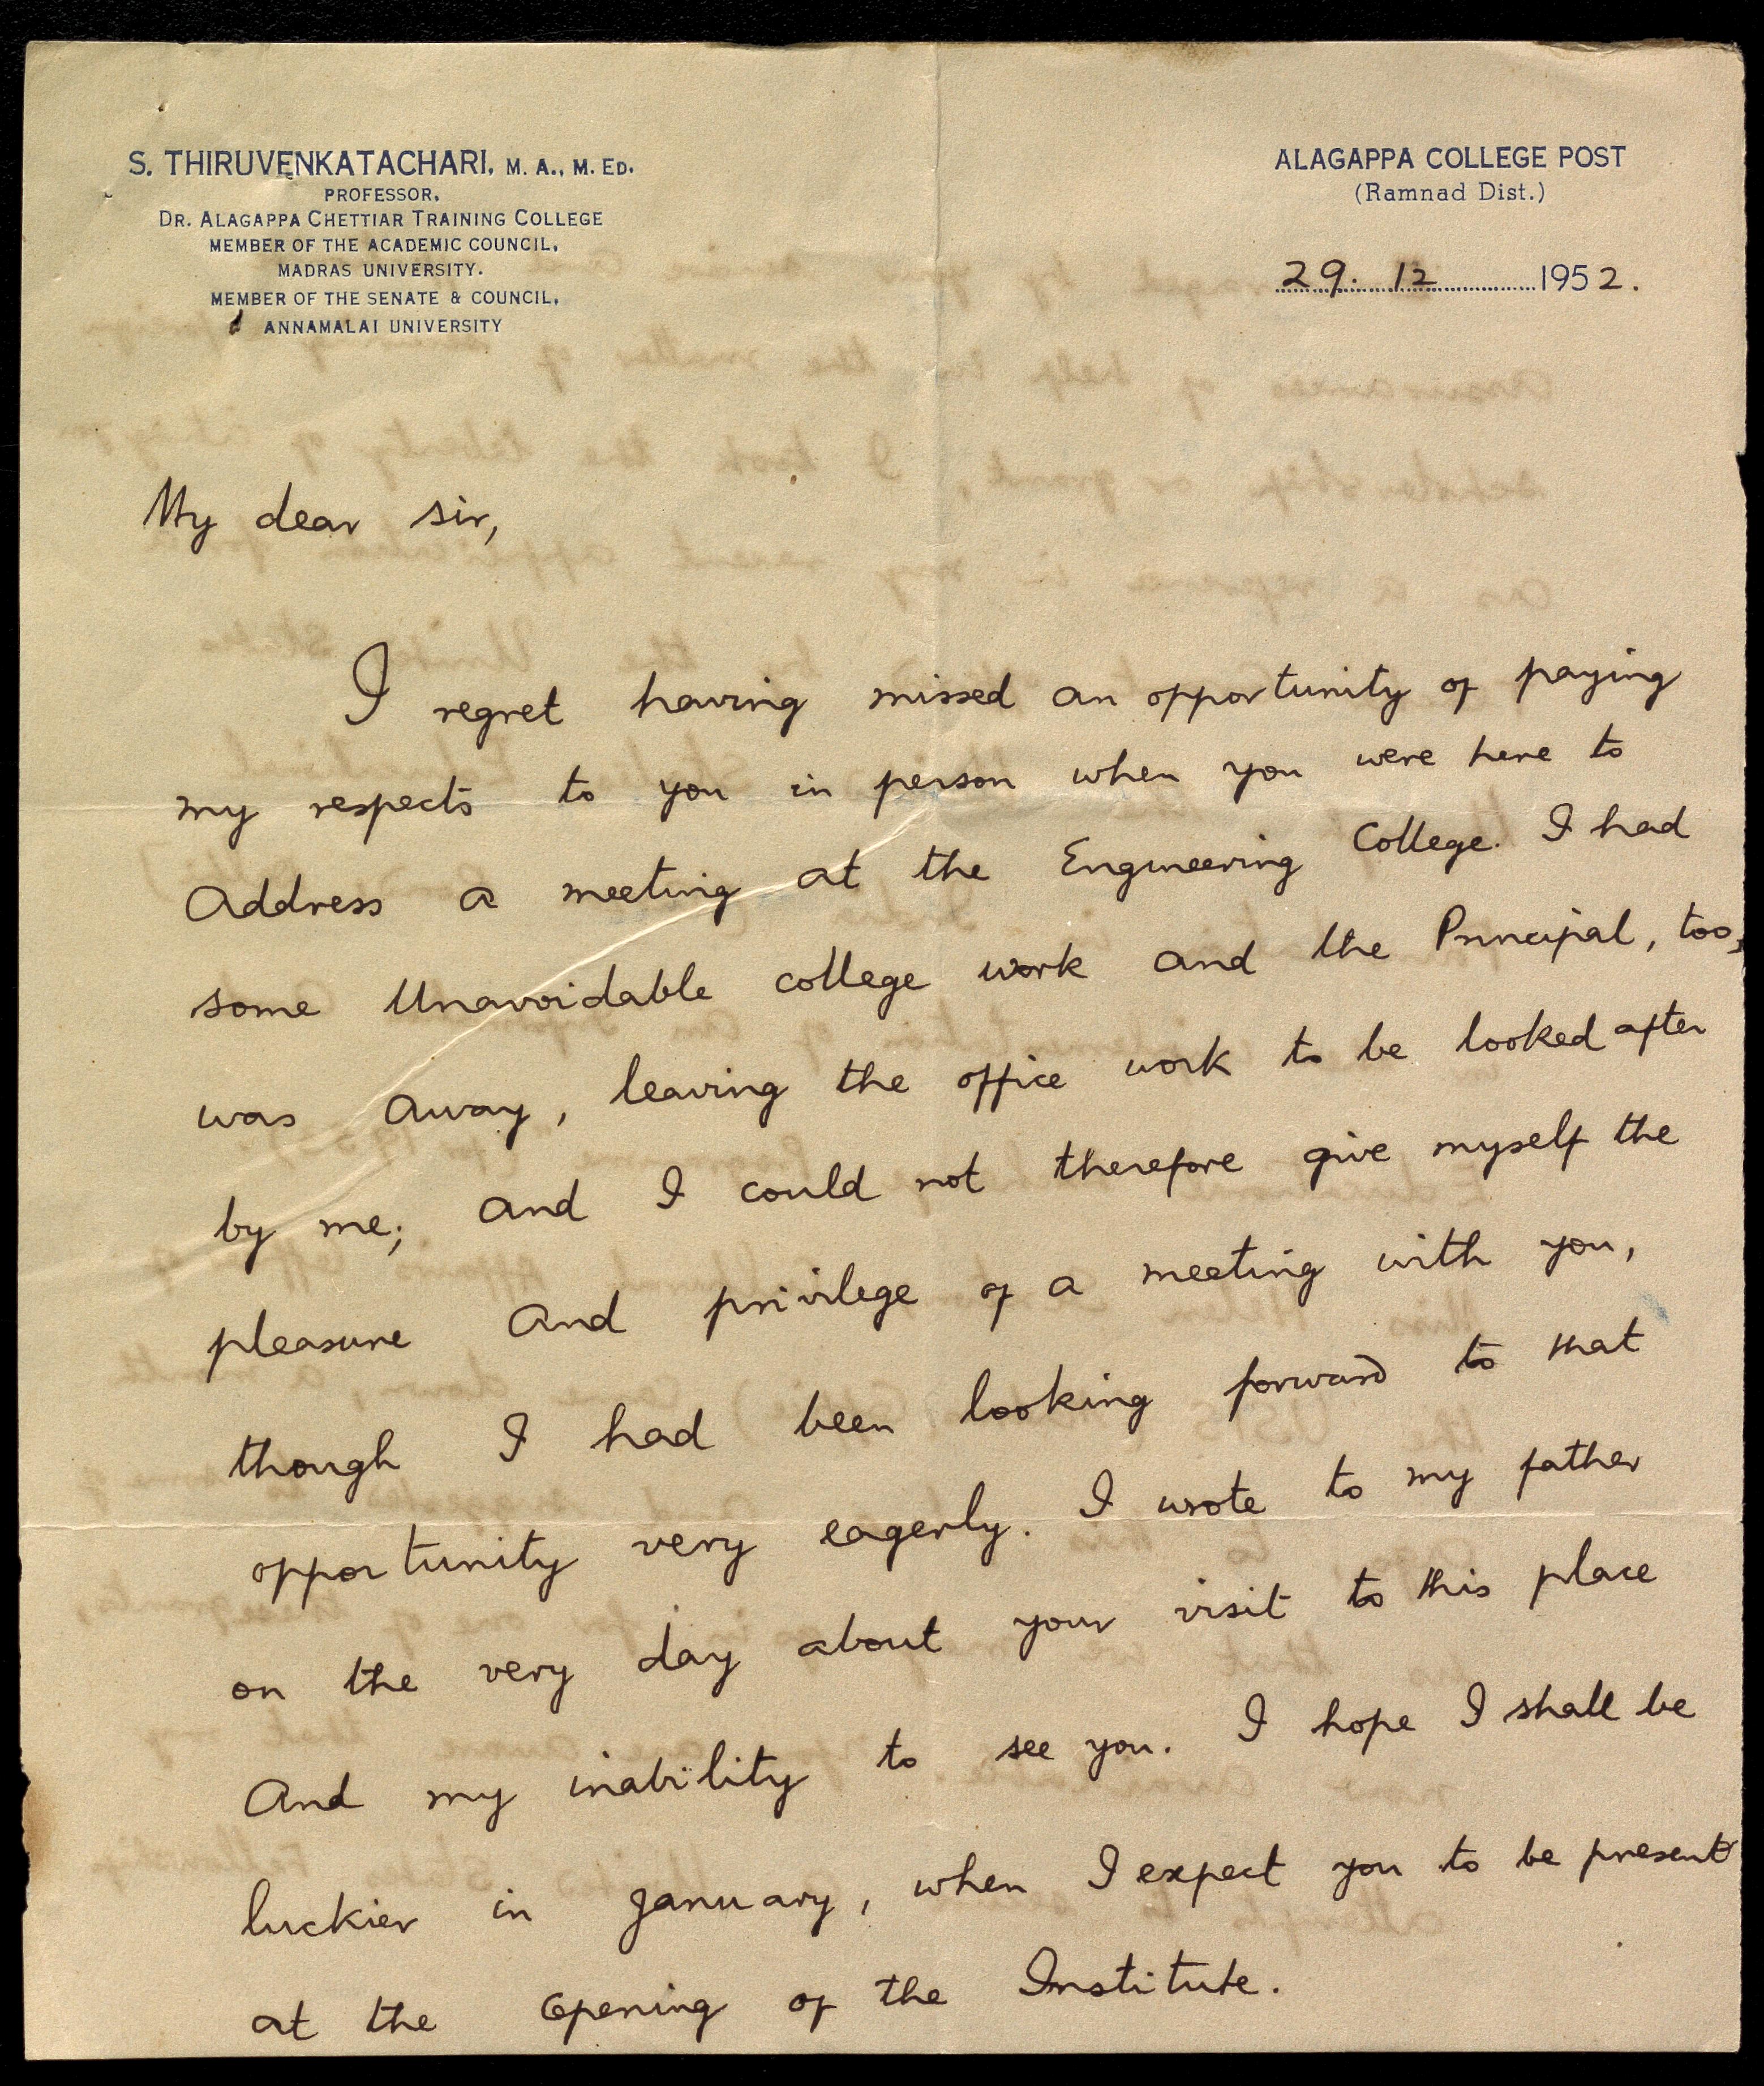 S. THIRUVENKATACHARI, M. A., M. ED.
PROFESSOR,
DR. ALAGAPPA CHETTIAR TRAINING COLLEGE
MEMBER OF THE ACADEMIC COUNCIL,
MADRAS UNIVERSITY.
MEMBER OF THE SENATE & COUNCIL,
ANNAMALAI UNIVERSITY
ALAGAPPA COLLEGE POST
(Ramnad Dist.)
29. 12 1952.
My dear sir,
I regret having missed an opportunity of paying
my respects to you in person when you were here to
address a meeting at the Engineering College. I had
some unavoidable college work and the Principal, too,
was away, leaving the office work to be looked after
by me; and I could not therefore give myself the
pleasure and privilege of a meeting with you,
though I had been looking forward to that
opportunity very eagerly. I wrote to my father
on the very day about your visit to this place
and my inability to see you. I hope I shall be
luckier in January, when I expect you to be present
at the opening of the Institute.